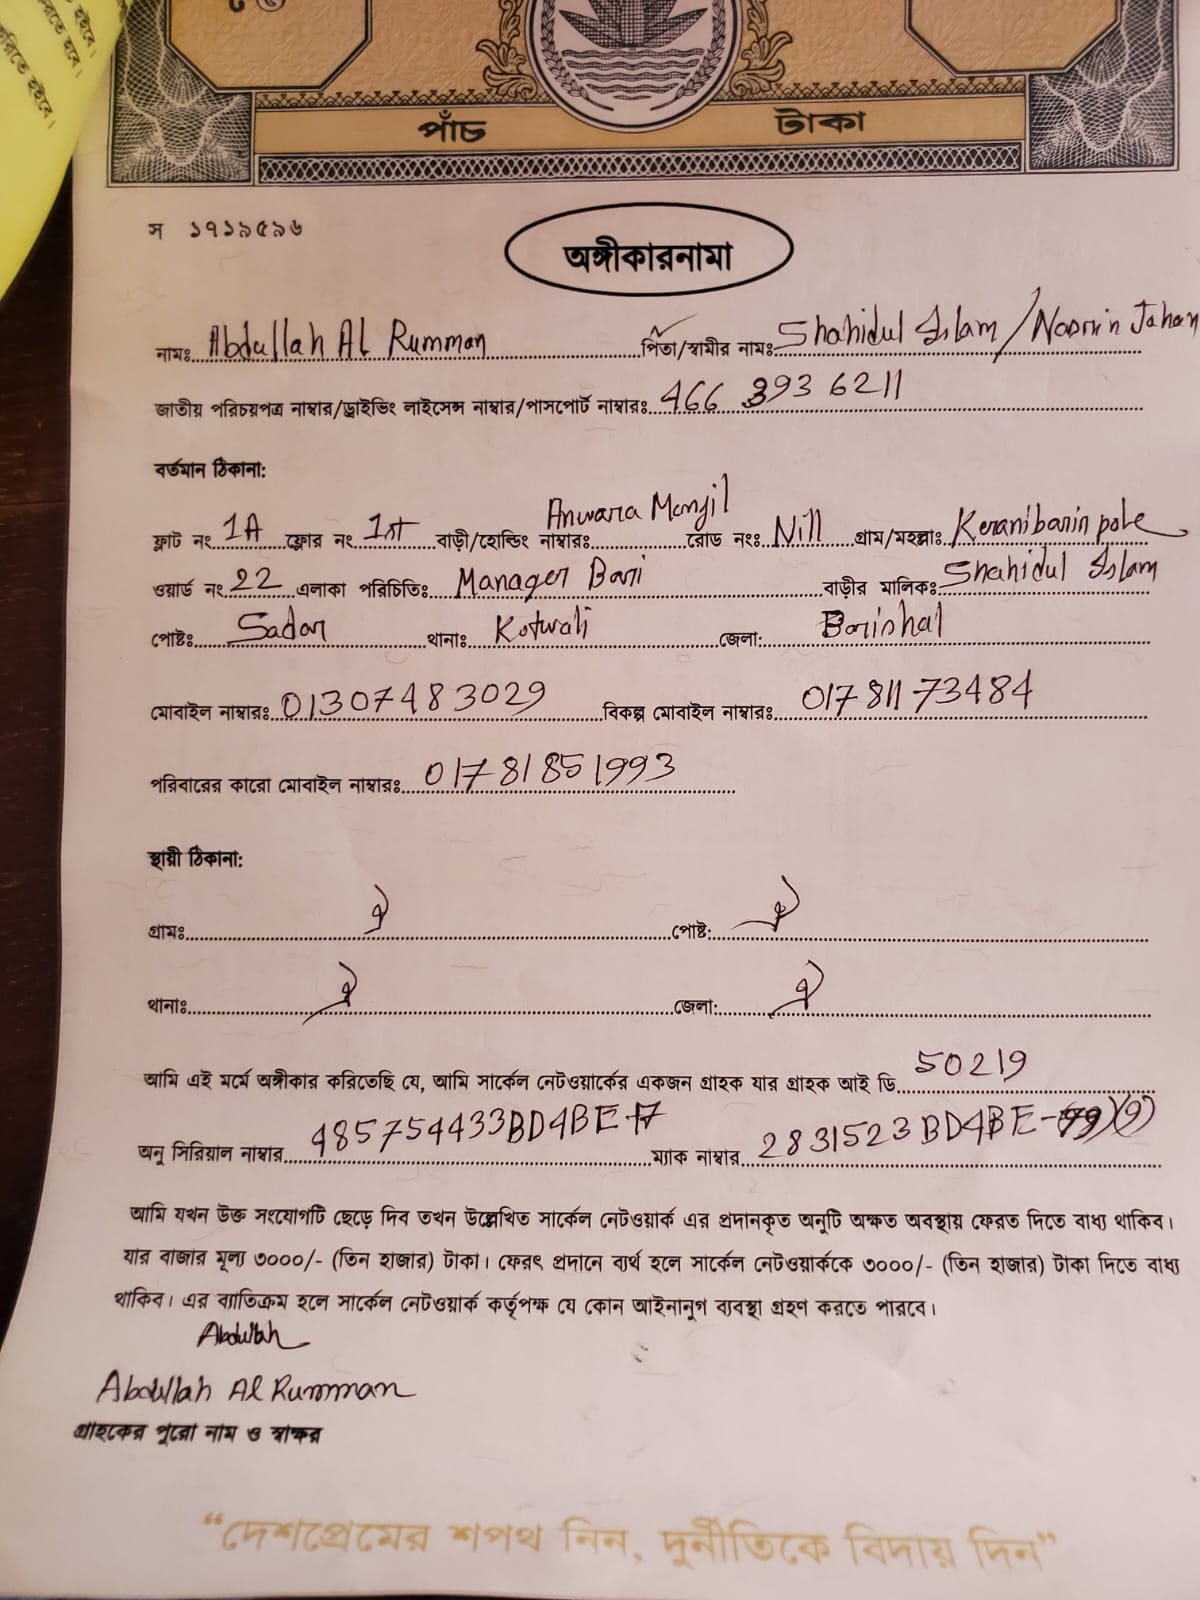 হইবে।
করতে হবে।
করিতে হইবে।
পাঁচ টাকা
স ১৭১৯৫৯৬
অঙ্গীকারনামা
নামঃ Abdullah Al Rumman পিতা/স্বামীর নামঃ Shahidul Islam / Nasrin Jahan
জাতীয় পরিচয়পত্র নাম্বার/ড্রাইভিং লাইসেন্স নাম্বার/পাসপোর্ট নাম্বারঃ 466 393 6211
বর্তমান ঠিকানা:
ফ্লাট নং 1A ফ্লোর নং 1st বাড়ী/হোল্ডিং নাম্বারঃ Anwara Monjil রোড নংঃ Nill গ্রাম/মহল্লাঃ Keranibarir pole
ওয়ার্ড নং 22 এলাকা পরিচিতিঃ Manager Bari বাড়ীর মালিকঃ Shahidul Islam
পোষ্টঃ Sadar থানাঃ Kotwali জেলা: Barishal
মোবাইল নাম্বারঃ 01307483029 বিকল্প মোবাইল নাম্বারঃ 01781173484
পরিবারের কারো মোবাইল নাম্বারঃ 01781851993
স্থায়ী ঠিকানা:
গ্রামঃ ঐ পোষ্ট: ঐ
থানাঃ ঐ জেলা: ঐ
আমি এই মর্মে অঙ্গীকার করিতেছি যে, আমি সার্কেল নেটওয়ার্কের একজন গ্রাহক যার গ্রাহক আই ডি 50219
অনু সিরিয়াল নাম্বার 485754433BD4BE ম্যাক নাম্বার 2831523BD4BE
আমি যখন উক্ত সংযোগটি ছেড়ে দিব তখন উল্লেখিত সার্কেল নেটওয়ার্ক এর প্রদানকৃত অনুটি অক্ষত অবস্থায় ফেরত দিতে বাধ্য থাকিব।
যার বাজার মূল্য ৩০০০/- (তিন হাজার) টাকা। ফেরৎ প্রদানে ব্যর্থ হলে সার্কেল নেটওয়ার্ককে ৩০০০/- (তিন হাজার) টাকা দিতে বাধ্য
থাকিব। এর ব্যাতিক্রম হলে সার্কেল নেটওয়ার্ক কর্তৃপক্ষ যে কোন আইনানুগ ব্যবস্থা গ্রহণ করতে পারবে।
Abdullah
Abdullah Al Rumman
গ্রাহকের পুরো নাম ও স্বাক্ষর
“দেশপ্রেমের শপথ নিন, দুর্নীতিকে বিদায় দিন”